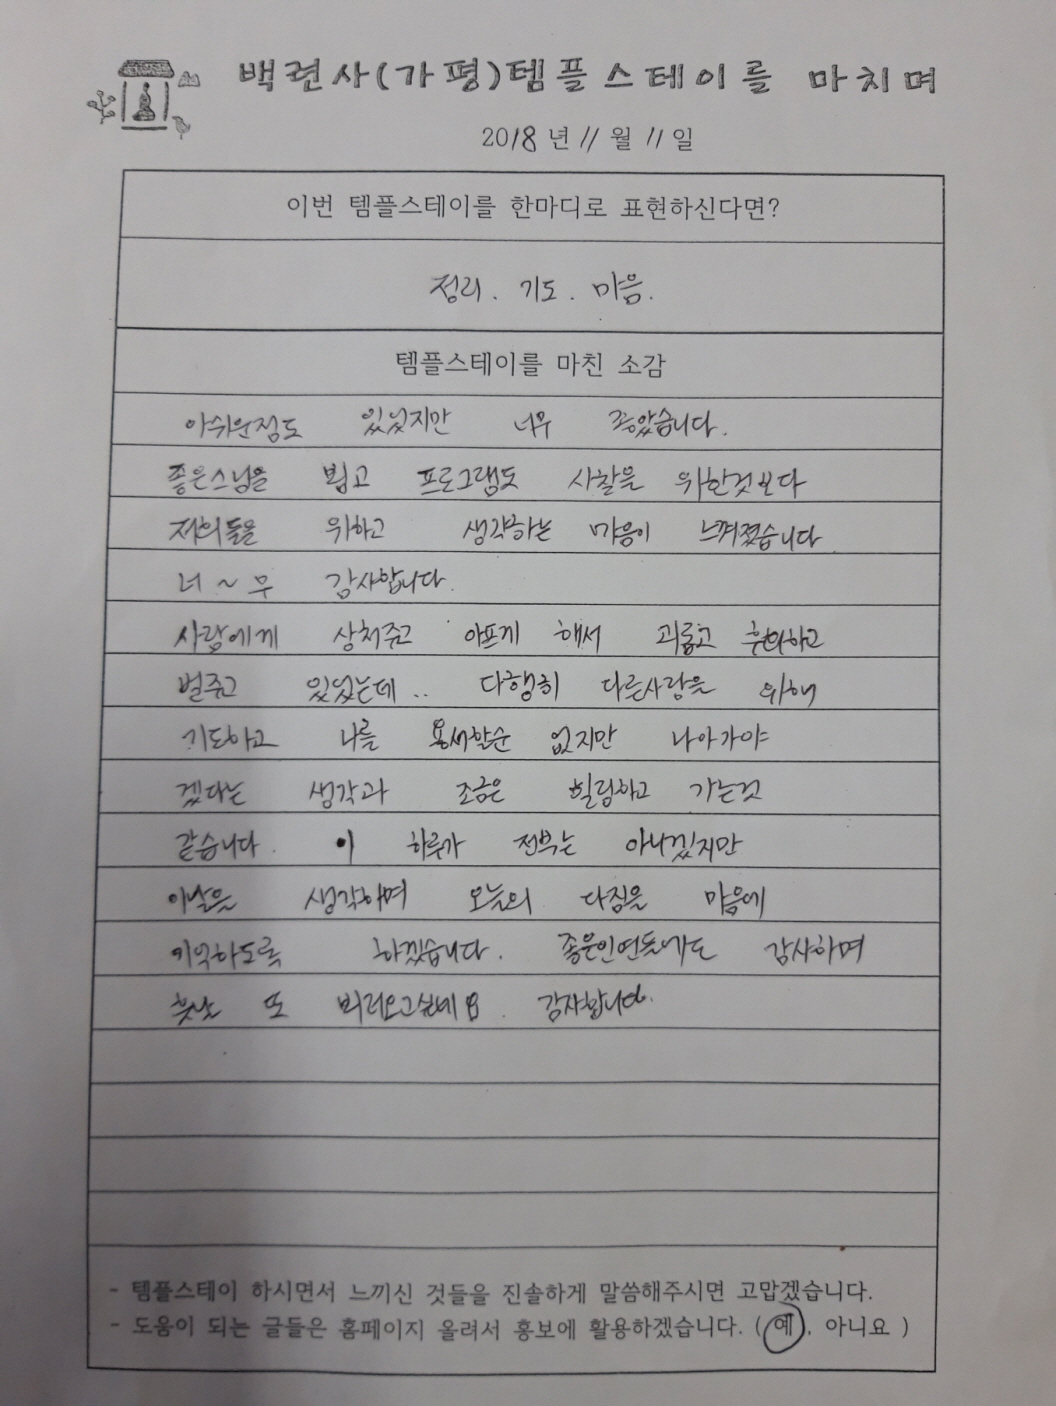 백련사(가평)템플스테이를 마치며
2018년 11월 11일
이번 템플스테이를 한마디로 표현하신다면?
정리. 기도. 마음.
템플스테이를 마친 소감
아쉬운점도 있었지만 너무 좋았습니다.
좋은스님을 뵙고 프로그램도 사찰을 위한것보다
저희들을 위하고 생각하는 마음이 느껴졌습니다
너~무 감사합니다.
사람에게 상처주고 아프게 해서 괴롭고 후회하고
벌주고 있었는데.. 다행히 다른사람을 위해
기도하고 나를 용서할순 없지만 나아가야
겠다는 생각과 조금은 힐링하고 가는것
같습니다. 이 하루가 전부는 아니겠지만
이날을 생각하며 오늘의 다짐을 마음에
기억하도록 하겠습니다. 좋은인연들에도 감사하며
훗날 또 감사합니다.
- 템플스테이 하시면서 느끼신 것들을 진솔하게 말씀해주시면 고맙겠습니다.
- 도움이 되는 글들은 홈페이지 올려서 홍보에 활용하겠습니다. ( 예, 아니요 )